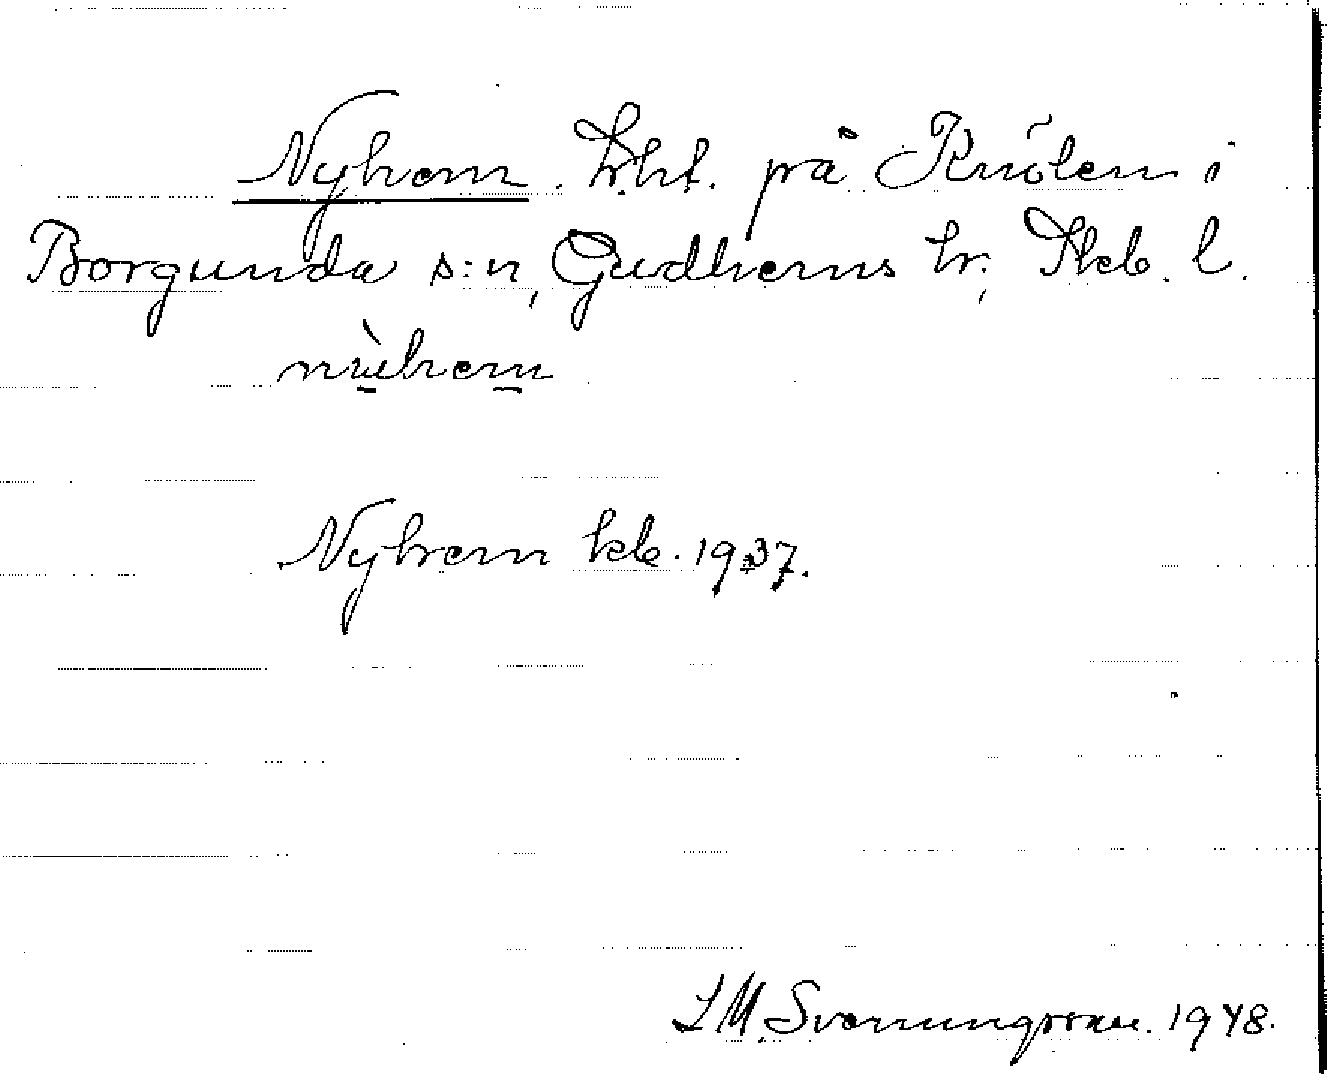 Nyhem. lht. på Knölen i
Borgunda s:n, Gudhems hr, Skb. l.
nỳhem
Nyhem kb. 1937.
S M. Svenungsson. 1948.